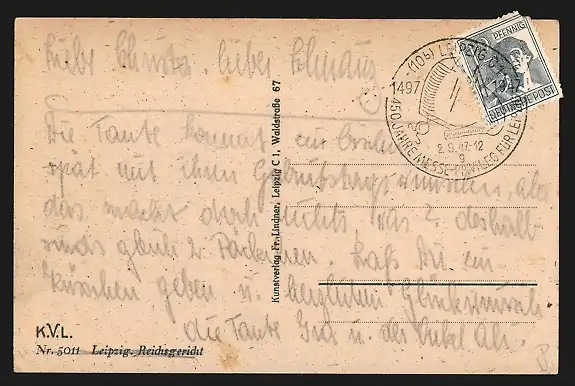 Liebe Christa, lieber
Die Tante kommt zur
spät mit ihren Geburtstagswünschen, aber
das macht doch nichts, was? deshalb
sinds gleich 2 Laß Dir ein
Küschen geben u. herzlichen Glückwunsch
die Tante u. der Onkel
(10b) LEIPZIG C
1497 1947
450 JAHRE MESSE-PRIVILEG FÜR
2.9.47-12
g
PFENNIG
DEUTSCHE POST
Kunstverlag Fr. Lindner, Leipzig C 1, Waldstraße 67
K.V.L.
Nr. 5011 Leipzig, Reichsgericht